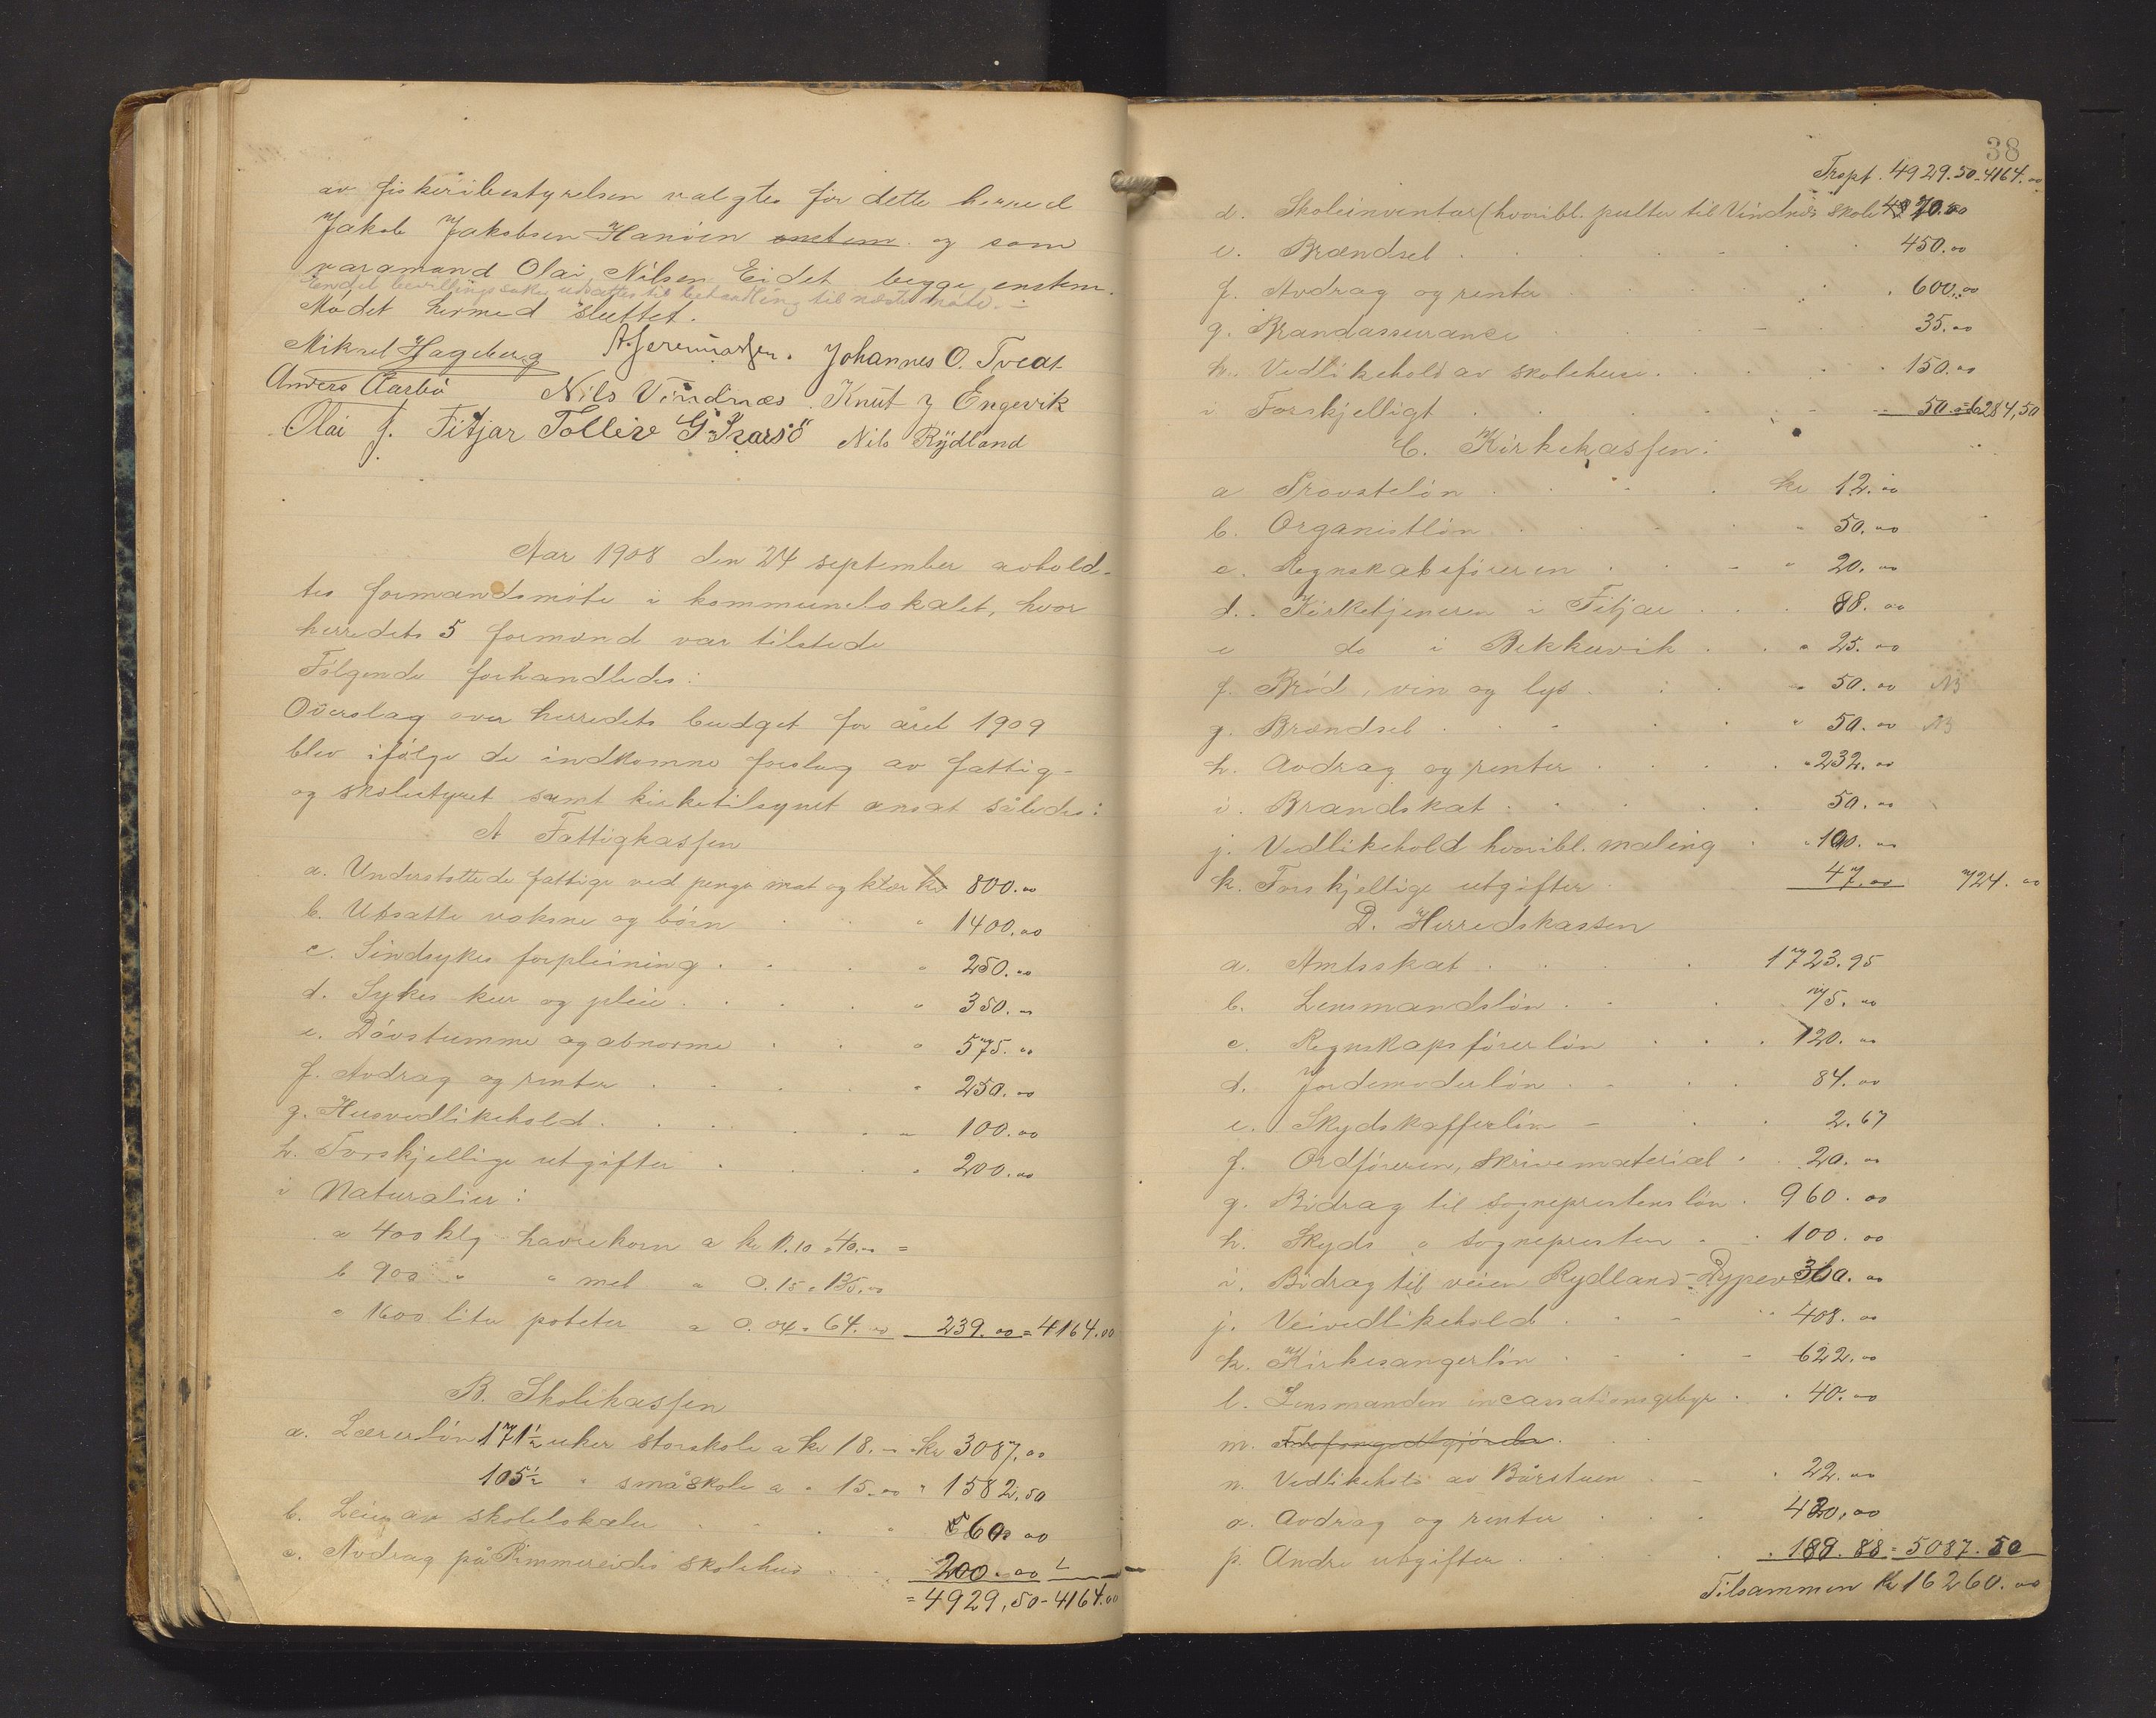 av fiskeribestyrelsen valgtes for dette herred
Jakob Jakobsen Hanøen enstem. og som
varamand Olai Nilsen Eidet begge enstem.
Endel bevillingssaker utsattes til behandling til næste møte.
Mødet hermed sluttet.
Mikael Hageberg A. Jeremiassen. Johannes O. Tveit
Anders Aarbø Nils Vindnæs. Knut J Engevik
Olai J. Fitjar Tolleiv G. Skarsö Nils Rydland
Aar 1908 den 24 september avhold-
tes formandsmøte i kommunelokalet, hvor
herredets 5 formænd var tilstede
Følgende forhandledes:
Overslag over herredets budget for året 1909
blev ifølge de indkomne forslag av fattig-
og skolestyret samt kirketilsynet ansat således:
A Fattigkassen
a. Understøttede fattige ved penge mat og klær kr 800.00
b. Utsatte voksne og børn " 1400.00
c. Sindsykes forpleining " 250.00
d. Sykes kur og pleie " 350.00
e. Døvstumme og abnorme " 575.00
f. Avdrag og renter " 250.00
g. Husvedlikehold " 100.00
h. Forskjellige utgifter " 200.00
i Naturalier:
a 400 klg havrekorn a kr 0.10 = 40.00 =
b 900 " " mel a 0.15 = 135.00
c 1600 liter poteter a 0.04 = 64.00 239.00 = 4164.00
B. Skolekassen
a. Lærerløn 171½ uker storskole a kr 18.– kr 3087.00
105½ " småskole a " 15.00 " 1582.50
b. Leie av skolelokaler " 60.00
c. Avdrag på Rimmereids skolehus 200.00
= 4929,50 - 4164.00
38
Trspt. 4929.50 - 4164.00
d. Skoleinventar (hvoribl. pulter til Vindnes skole 70.00
e. Brændsel 450.00
f. Avdrag og renter 600.00
g. Brandassurance 35.00
h. Vedlikehold av skolehuse 150.00
i Forskjelligt 50.00 = 6284,50
C. Kirkekassen:
a Provsteløn kr 12.00
b. Organistløn " 50.00
c. Regnskabsføreren " 20.00
d. Kirketjeneren i Fitjar 88.00
e do i Bekkervik " 25.00
f. Brød, vin og lys " 50.00 NB
g. Brændsel " 50.00 NB
h. Avdrag og renter " 232.00
i. Brandskat 50.00
j. Vedlikehold hvoribl. maling " 100.00
k. Forskjellige utgifter 47.00 724.00
D. Herredskassen
a. Amtsskat 1723.95
b. Lensmandsløn 75.00
c. Regnskapsførerløn 120.00
d. Jordemoderløn 84.00
e. Skydskafferløn 2.67
f. Ordføreren, skrivemateriel 20.00
g. Bidrag til sogneprestens løn 960.00
h. Skyds " sognepresten 100.00
i. Bidrag til veien Rydland - Rypev 300.00
j. Veivedlikehold 408.00
k. Kirkesangerløn 622.00
l. Lensmanden incassationsgebyr 40.00
m.
n. Vedlikehold av Bårstuen 22.00
o. Avdrag og renter 420,00
p. Andre utgifter 189.88 = 5087.50
Tilsammen kr 16260.00